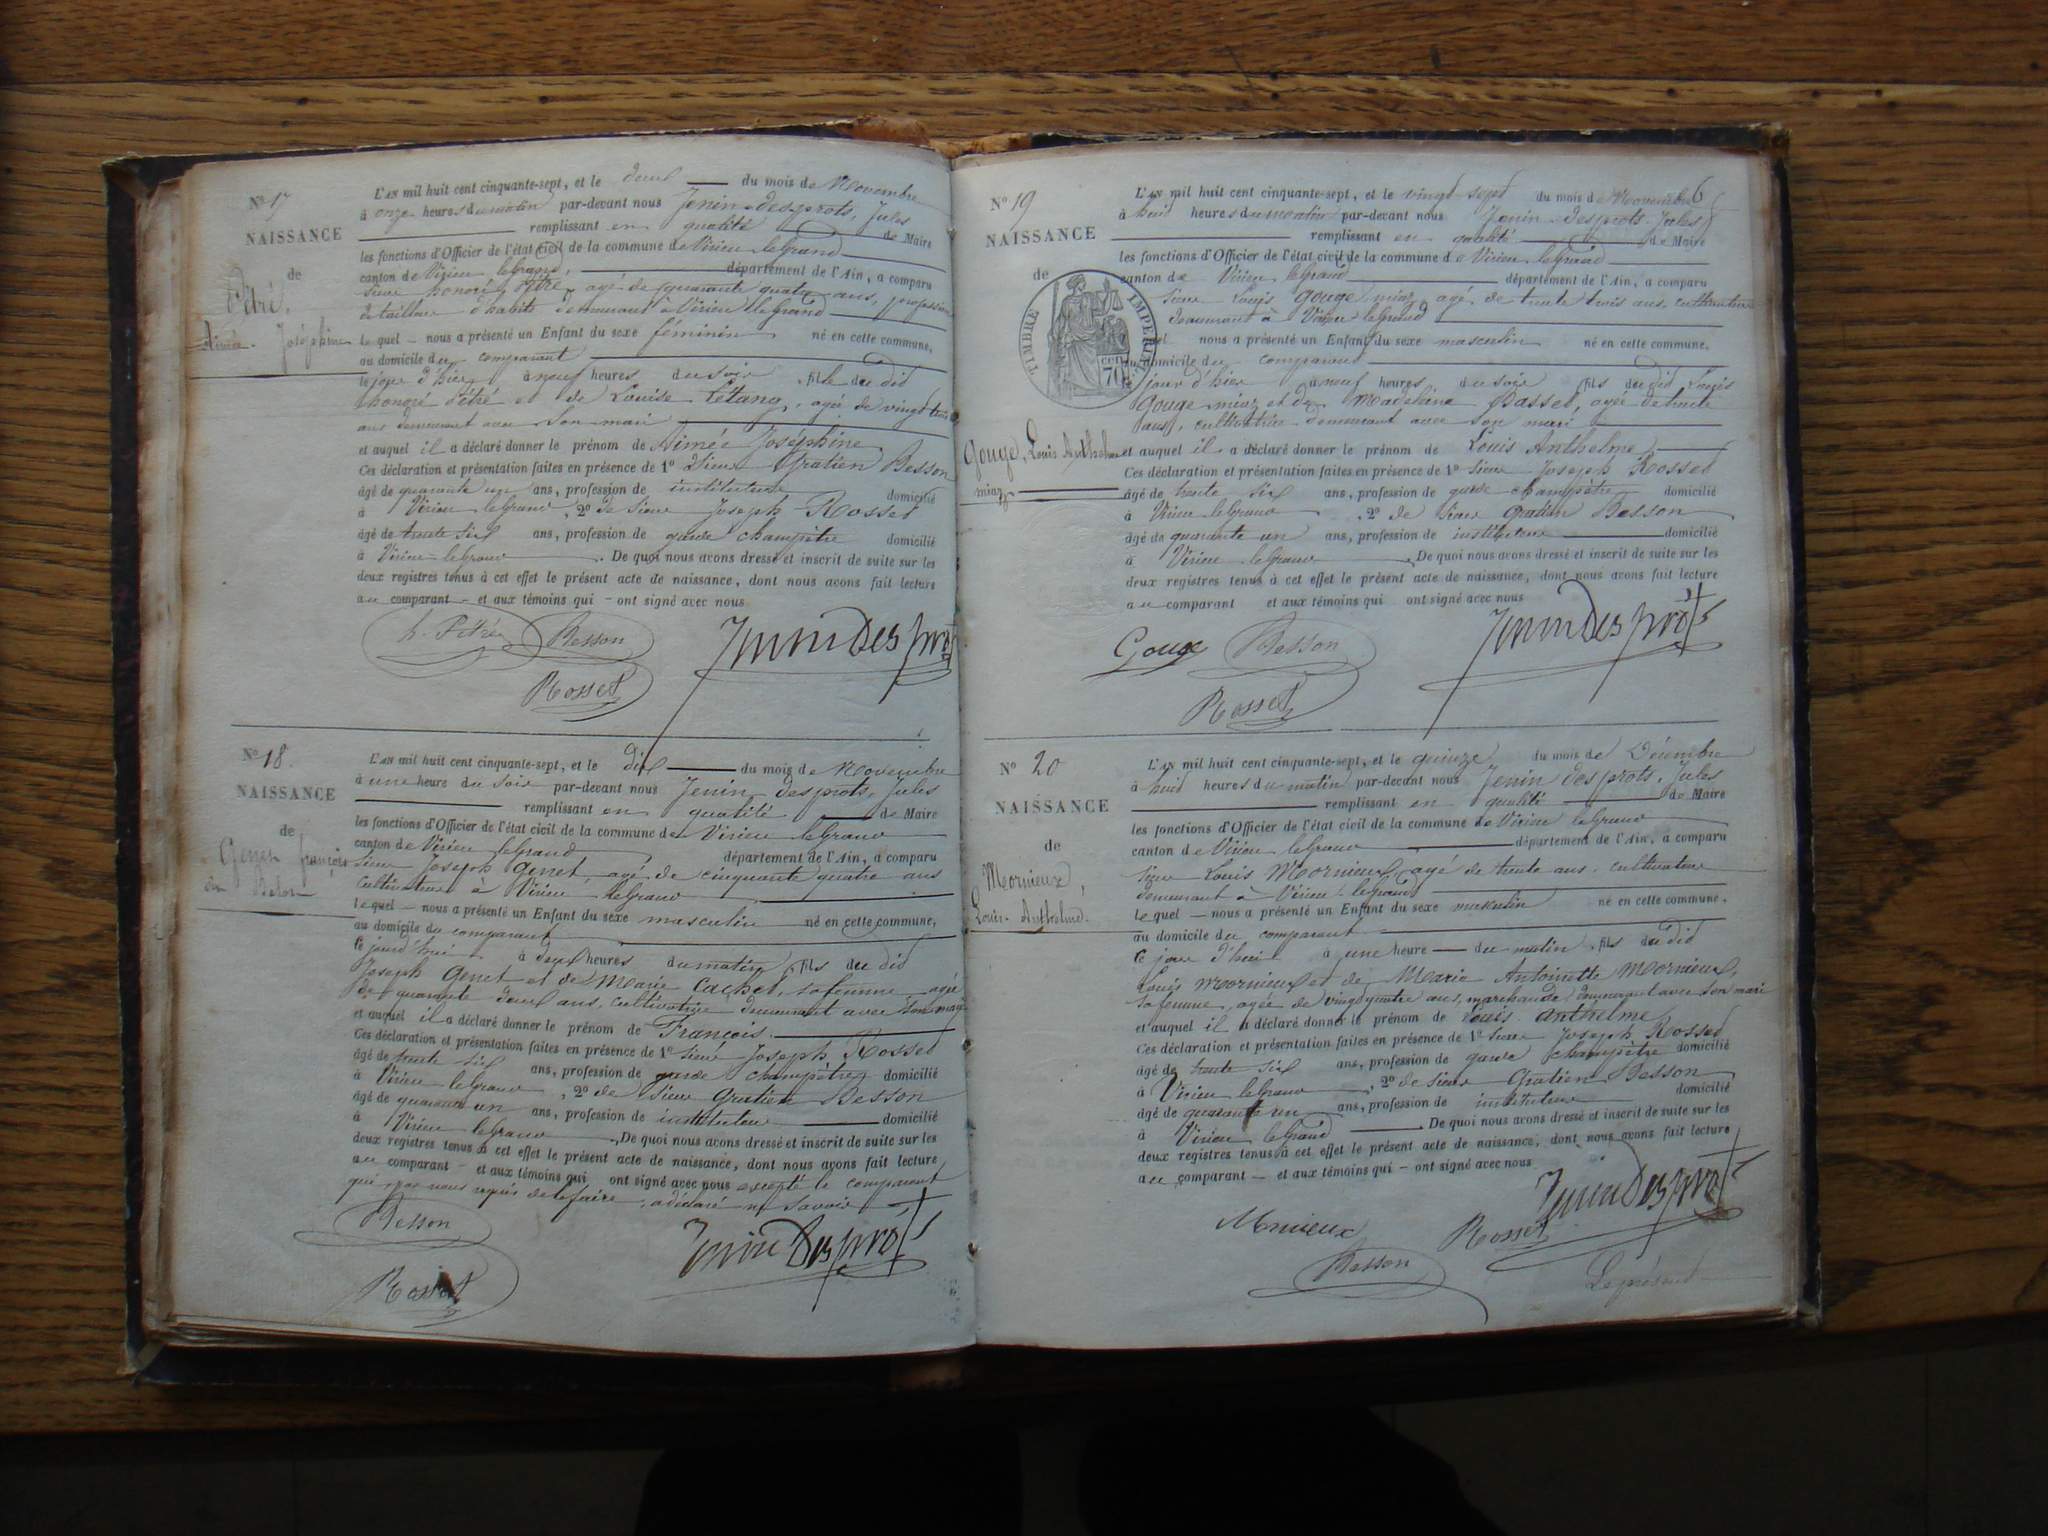 Nº 17
NAISSANCE
de
Pétré,
Aimée. Joséphine
L'AN mil huit cent cinquante-sept, et le deux du mois de Novembre
à onze heures du matin par-devant nous Jenin-desprots, Jules
remplissant en qualité de Maire
les fonctions d'Officier de l'état civil de la commune de Virieu leGrand
canton de Virieu leGrand, département de l'Ain, a comparu
sieur honoré Pétré, agé de quarante quatre ans, profession
de tailleur d'habits demeurant à Virieu leGrand
lequel nous a présenté un Enfant du sexe féminin né en cette commune,
au domicile du comparant
le jour d'hier à neuf heures du soir, fille du dit
honoré Pétré et de Louise Létang, agée de vingt trois
ans demeurant avec son mari
et auquel il a déclaré donner le prénom de Aimée Joséphine
Ces déclaration et présentation faites en présence de 1º sieur Gratien Besson
âgé de quarante un ans, profession de instituteur domicilié
à Virieu leGrand, 2º de sieur Joseph Rosset
âgé de trente six ans, profession de garde champêtre domicilié
à Virieu-leGrand. De quoi nous avons dressé et inscrit de suite sur les
deux registres tenus à cet effet le présent acte de naissance, dont nous avons fait lecture
au comparant et aux témoins qui ont signé avec nous
h. Pétré Besson Jenin Desprots
Rosset
Nº 18.
NAISSANCE
de
Genet françois
L'AN mil huit cent cinquante-sept, et le dix du mois de Novembre
à une heure du soir par-devant nous Jenin desprots, Jules
remplissant en qualité de Maire
les fonctions d'Officier de l'état civil de la commune de Virieu leGrand
canton de Virieu leGrand département de l'Ain, a comparu
sieur Joseph Genet, agé de cinquante quatre ans
cultivateur à Virieu leGrand
lequel nous a présenté un Enfant du sexe masculin né en cette commune,
au domicile du comparant
ce jourd'hui à deux heures du matin, fils du dit
Joseph Genet et de Marie Cachet, sa femme agée
de quarante deux ans, cultivatrice demeurant avec son mari
et auquel il a déclaré donner le prénom de François.
Ces déclaration et présentation faites en présence de 1º sieur Joseph Rosset
âgé de trente six ans, profession de garde champêtre domicilié
à Virieu leGrand, 2º de sieur Gratien Besson
âgé de quarante un ans, profession de instituteur domicilié
à Virieu leGrand. De quoi nous avons dressé et inscrit de suite sur les
deux registres tenus à cet effet le présent acte de naissance, dont nous avons fait lecture
au comparant et aux témoins qui ont signé avec nous excepté le comparant
qui, par nous requis de le faire, a déclaré ne savoir
Besson Jenin Desprots
Rosset
6
Nº 19
NAISSANCE
de
TIMBRE IMPERIAL
70 cen
Gouge, Louis Anthelme
miaz
L'AN mil huit cent cinquante-sept, et le vingt sept du mois de Novembre
à huit heures du matin par-devant nous Jenin-desprots, Jules
remplissant en qualité de Maire
les fonctions d'Officier de l'état civil de la commune de Virieu leGrand
canton de Virieu leGrand département de l'Ain, a comparu
sieur Louis Gouge miaz agé de trente trois ans, cultivateur
demeurant à Virieu leGrand
lequel nous a présenté un Enfant du sexe masculin né en cette commune,
au domicile du comparant
jour d'hier à neuf heures du soir fils du dit Louis
Gouge miaz et de Madelaine Passet, agée de trente
ans, cultivatrice demeurant avec son mari
et auquel il a déclaré donner le prénom de Louis Anthelme
Ces déclaration et présentation faites en présence de 1º sieur Joseph Rosset
âgé de trente six ans, profession de garde champêtre domicilié
à Virieu leGrand, 2º de sieur Gratien Besson
âgé de quarante un ans, profession de instituteur domicilié
à Virieu leGrand. De quoi nous avons dressé et inscrit de suite sur les
deux registres tenus à cet effet le présent acte de naissance, dont nous avons fait lecture
au comparant et aux témoins qui ont signé avec nous
Gouge Besson Jenin Desprots
Rosset
Nº 20
NAISSANCE
de
Mornieux,
Louis-Anthelme.
L'AN mil huit cent cinquante-sept, et le quinze du mois de Décembre
à huit heures du matin par-devant nous Jenin desprots, Jules
remplissant en qualité de Maire
les fonctions d'Officier de l'état civil de la commune de Virieu leGrand
canton de Virieu leGrand département de l'Ain, a comparu
sieur Louis Mornieux, agé de trente ans, cultivateur
demeurant à Virieu leGrand
lequel nous a présenté un Enfant du sexe masculin né en cette commune,
au domicile du comparant
ce jour d'hui à une heure du matin, fils du dit
Louis Mornieux et de Marie Antoinette Mornieux,
sa femme, agée de vingt quatre ans, marchande, demeurant avec son mari
et auquel il a déclaré donner le prénom de Louis Anthelme
Ces déclaration et présentation faites en présence de 1º sieur Joseph Rosset
âgé de trente six ans, profession de garde champêtre domicilié
à Virieu leGrand, 2º de sieur Gratien Besson
âgé de quarante un ans, profession de instituteur domicilié
à Virieu leGrand. De quoi nous avons dressé et inscrit de suite sur les
deux registres tenus à cet effet le présent acte de naissance, dont nous avons fait lecture
au comparant et aux témoins qui ont signé avec nous
Jenin Desprots
Mornieux Rosset
Besson
Le présent